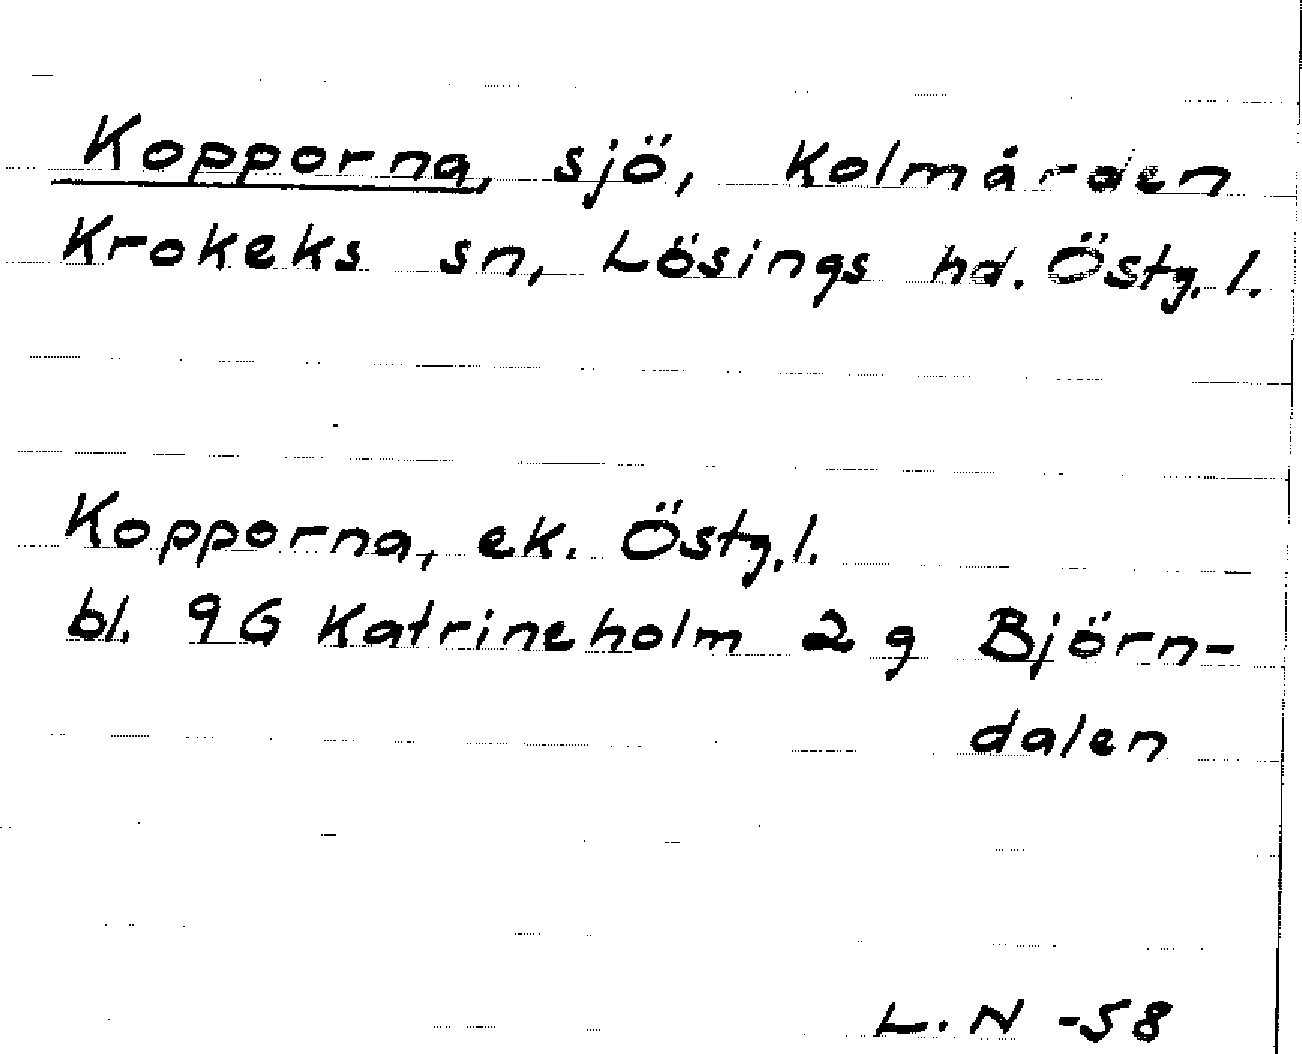 Kopporna, sjö, Kolmården
Krokeks sn, Lösings hd. Östg. l.
Kopporna, ek. Östg. l.
bl. 9G Katrineholm 2 g Björn-
dalen
L. N -58